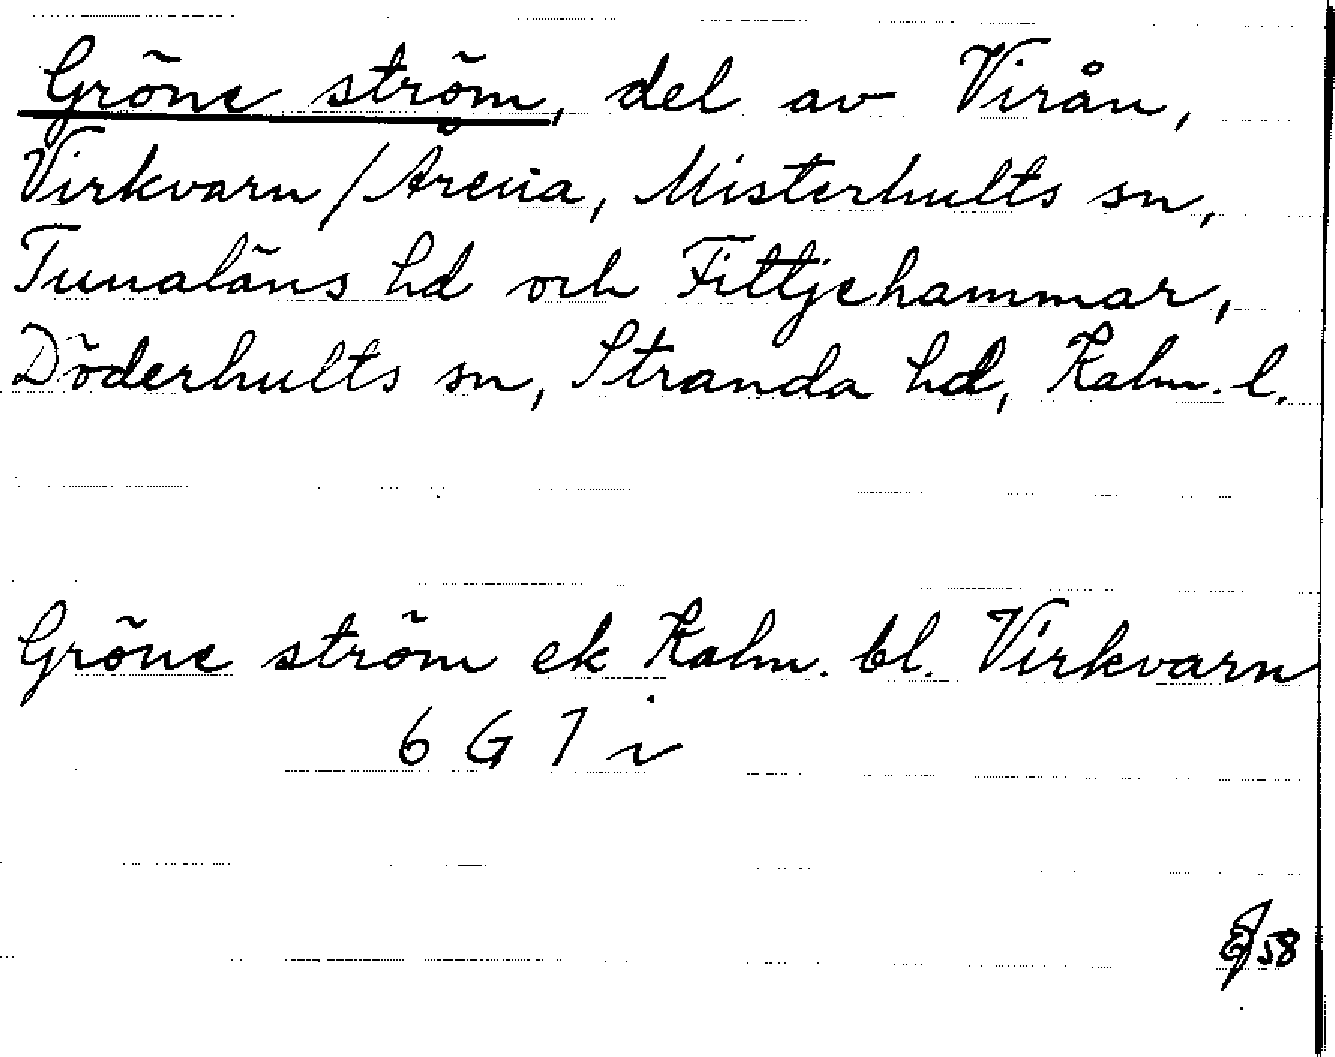 Gröne ström, del av Virån,
Virkvarn/Årena, Misterhults sn,
Tunaläns hd och Fittjehammar,
Döderhults sn, Stranda hd, Kalm. l.
Gröne ström ek Kalm. bl. Virkvarn
6 G 7 i
58